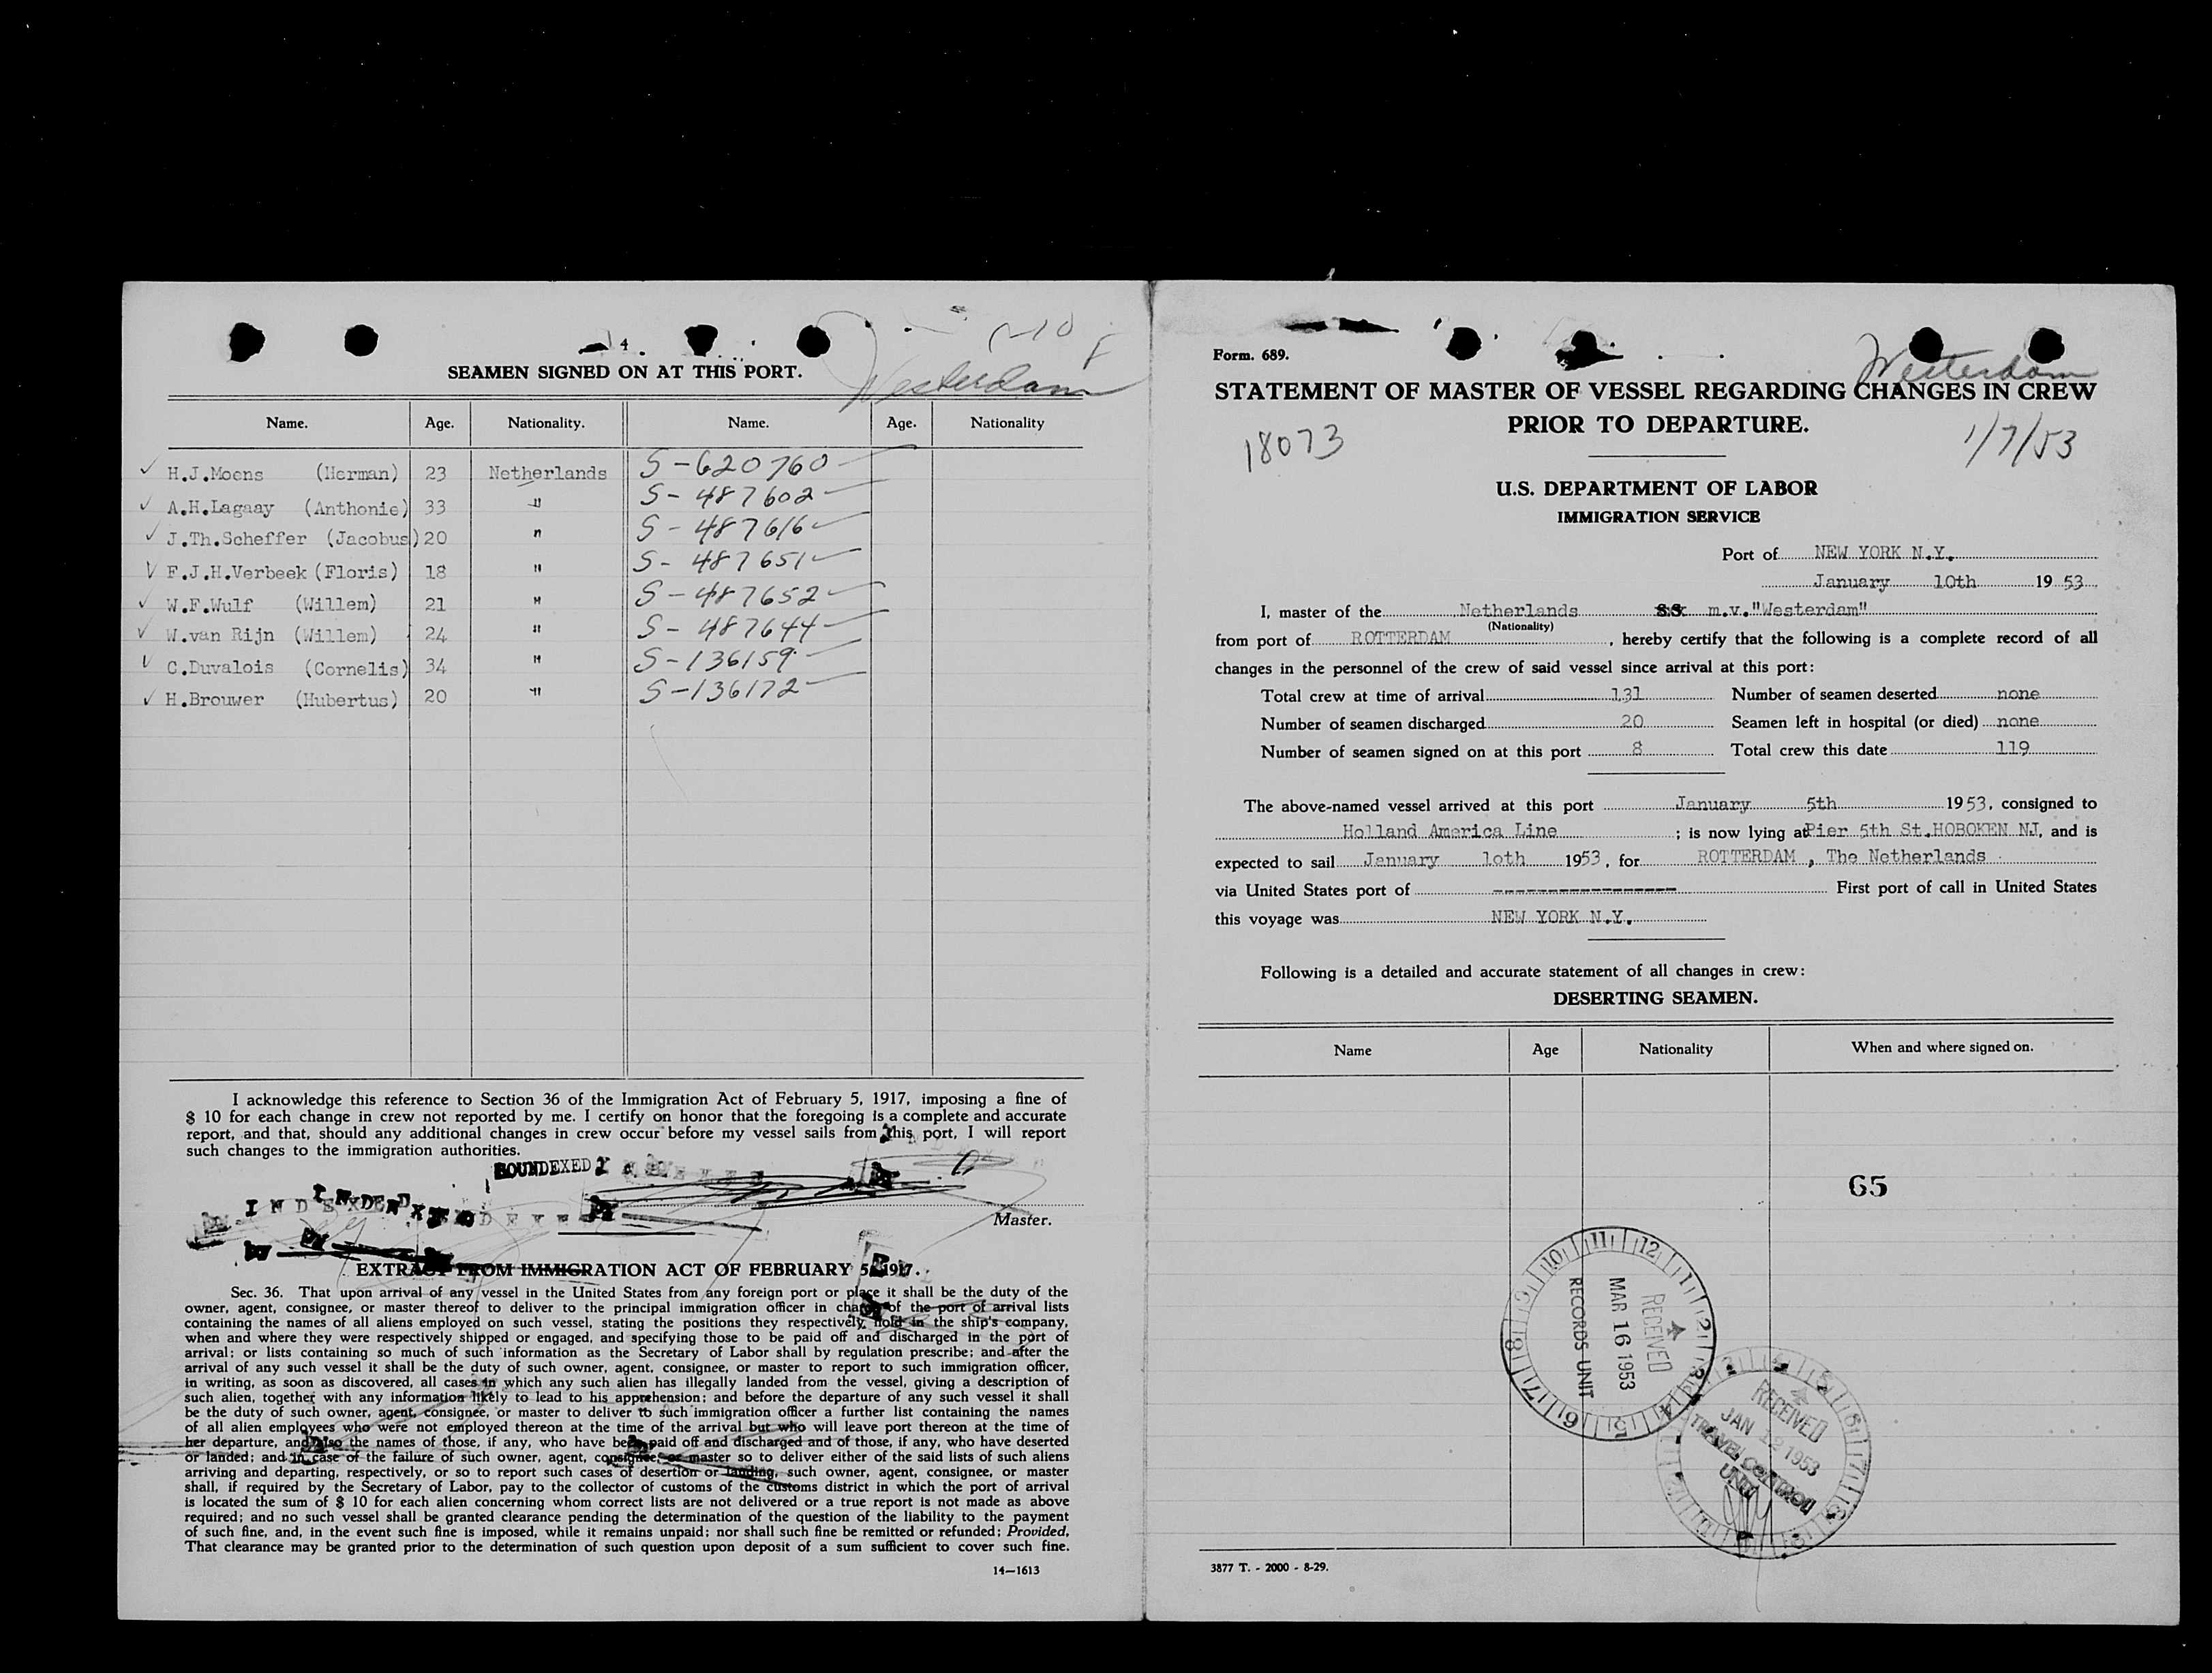 4
Westerdam
SEAMEN SIGNED ON AT THIS PORT.
Name. Age. Nationality. Name. Age. Nationality
H.J.Moens (Herman) 23 Netherlands S-620760
A.H.Lagaay (Anthonie) 33 " S-487602
J.Th.Scheffer (Jacobus) 20 " S-487616
F.J.H.Verbeek (Floris) 18 " S-487651
W.F.Wulf (Willem) 21 " S-487652
W.van Rijn (Willem) 24 " S-487644
C.Duvalois (Cornelis) 34 " S-136159
H.Brouwer (Hubertus) 20 " S-136172
I acknowledge this reference to Section 36 of the Immigration Act of February 5, 1917, imposing a fine of
$ 10 for each change in crew not reported by me. I certify on honor that the foregoing is a complete and accurate
report, and that, should any additional changes in crew occur before my vessel sails from this port, I will report
such changes to the immigration authorities.
SOUNDEXED
INDEXED
Master.
EXTRACT FROM IMMIGRATION ACT OF FEBRUARY 5, 1917.
Sec. 36. That upon arrival of any vessel in the United States from any foreign port or place it shall be the duty of the
owner, agent, consignee, or master thereof to deliver to the principal immigration officer in charge of the port of arrival lists
containing the names of all aliens employed on such vessel, stating the positions they respectively hold in the ship's company,
when and where they were respectively shipped or engaged, and specifying those to be paid off and discharged in the port of
arrival; or lists containing so much of such information as the Secretary of Labor shall by regulation prescribe; and after the
arrival of any such vessel it shall be the duty of such owner, agent, consignee, or master to report to such immigration officer,
in writing, as soon as discovered, all cases in which any such alien has illegally landed from the vessel, giving a description of
such alien, together with any information likely to lead to his apprehension; and before the departure of any such vessel it shall
be the duty of such owner, agent, consignee, or master to deliver to such immigration officer a further list containing the names
of all alien employees who were not employed thereon at the time of the arrival but who will leave port thereon at the time of
her departure, and also the names of those, if any, who have been paid off and discharged and of those, if any, who have deserted
or landed; and in case of the failure of such owner, agent, consignee, or master so to deliver either of the said lists of such aliens
arriving and departing, respectively, or so to report such cases of desertion or landing, such owner, agent, consignee, or master
shall, if required by the Secretary of Labor, pay to the collector of customs of the customs district in which the port of arrival
is located the sum of $ 10 for each alien concerning whom correct lists are not delivered or a true report is not made as above
required; and no such vessel shall be granted clearance pending the determination of the question of the liability to the payment
of such fine, and, in the event such fine is imposed, while it remains unpaid; nor shall such fine be remitted or refunded; Provided,
That clearance may be granted prior to the determination of such question upon deposit of a sum sufficient to cover such fine.
14—1613
Form. 689.
Westerdam
STATEMENT OF MASTER OF VESSEL REGARDING CHANGES IN CREW
PRIOR TO DEPARTURE.
18073
1/7/53
U.S. DEPARTMENT OF LABOR
IMMIGRATION SERVICE
Port of NEW YORK N.Y.
January 10th 1953
I, master of the Netherlands S.S. m.v."Westerdam"
(Nationality)
from port of ROTTERDAM, hereby certify that the following is a complete record of all
changes in the personnel of the crew of said vessel since arrival at this port:
Total crew at time of arrival 131 Number of seamen deserted none
Number of seamen discharged 20 Seamen left in hospital (or died) none
Number of seamen signed on at this port 8 Total crew this date 119
The above-named vessel arrived at this port January 5th 1953, consigned to
Holland America Line ; is now lying at Pier 5th St.HOBOKEN NJ, and is
expected to sail January 1oth 1953, for ROTTERDAM , The Netherlands
via United States port of ----------------- First port of call in United States
this voyage was NEW YORK N.Y.
Following is a detailed and accurate statement of all changes in crew:
DESERTING SEAMEN.
Name Age Nationality When and where signed on.
65
RECEIVED
MAR 16 1953
RECORDS UNIT
RECEIVED
JAN 12 1953
TRAVEL CONTROL
UNIT
3877 T. - 2000 - 8-29.